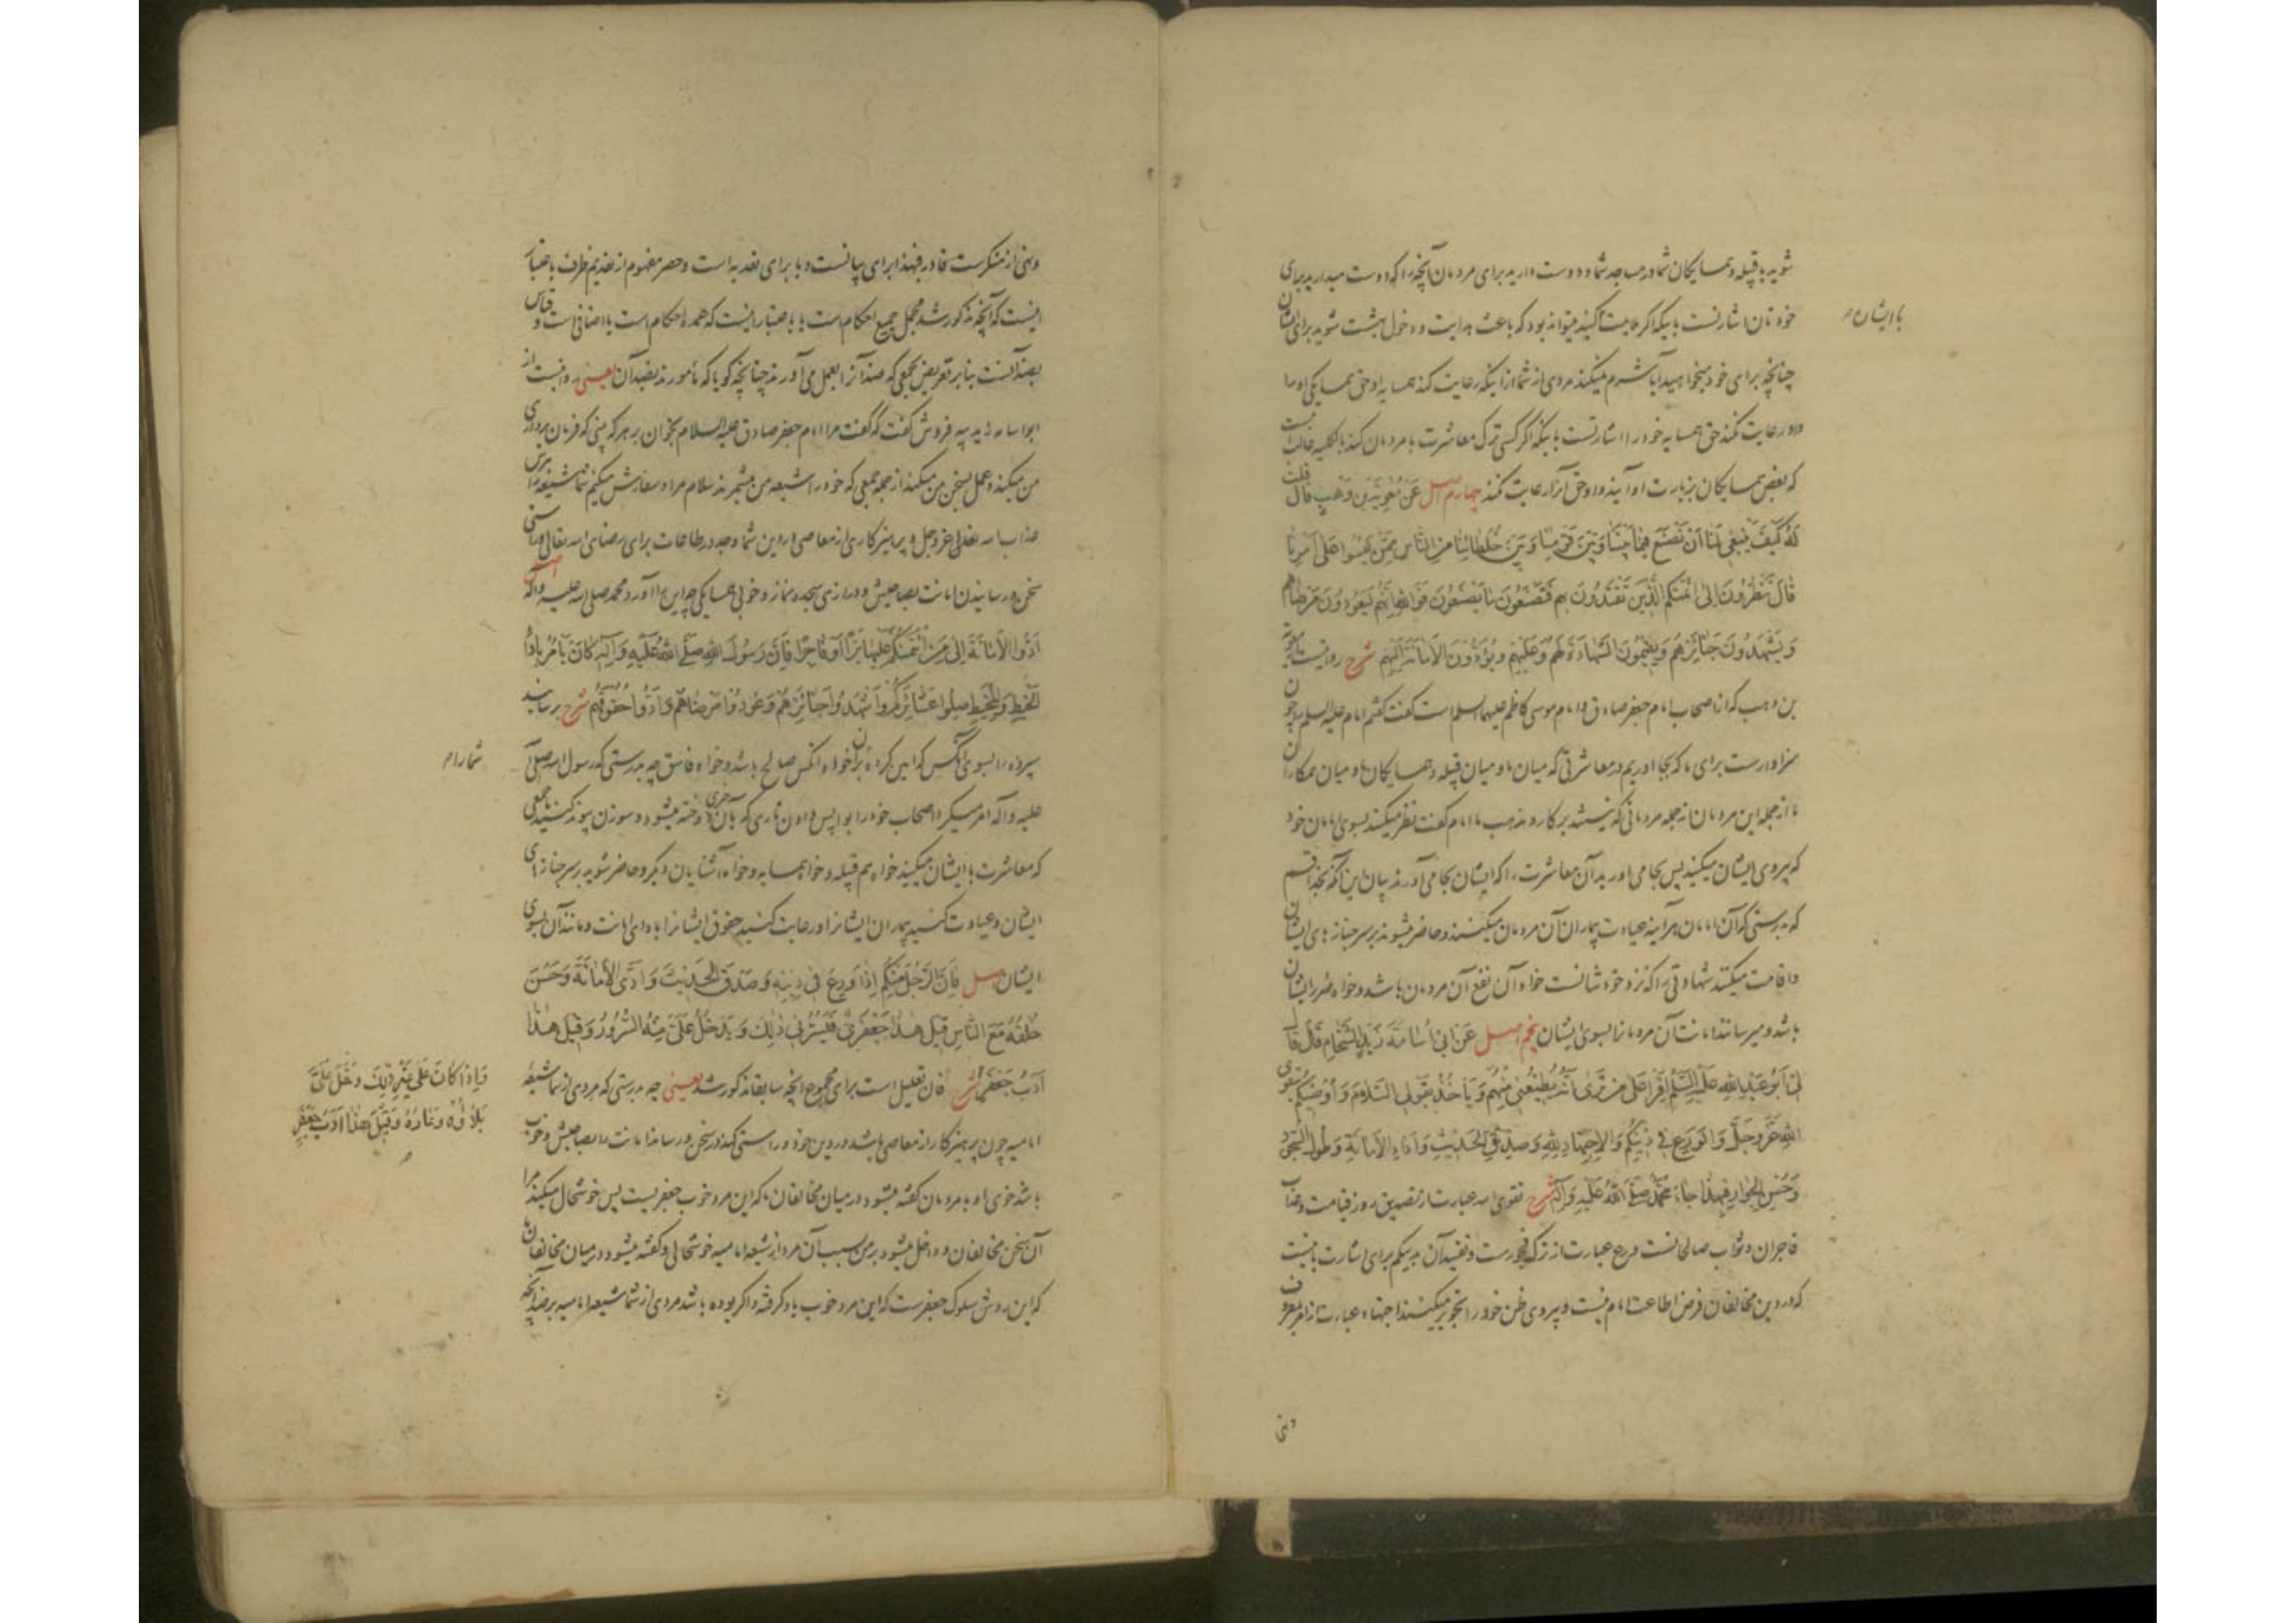 شوید با قبیله و همسایگان شما در مساجد شما و دوست دارید برای مردمان آنچه را که دوست میدارید برای
خودتان اشارتست باینکه اگر رعایت کنید میتواند بود که باعث هدایت و دخول بهشت شوید برای ایشان
با ایشان
چنانچه برای خود میخواهید آیا شرم نمیکند مردی از شما از اینکه رعایت کند همسایه او حق همسایگی او را
و او رعایت نکند حق همسایه خود را اشارتست باینکه اگر کسی ترک معاشرت با مردمان کند بالکلیه خالی نیست
که بعض همسایگان بزیارت او آیند و او حق آنرا رعایت نکند چهارم اصل عَنْ مُعوِیَةَ بْنِ وَهْبٍ قَالَ قُلْتُ
لَهُ كَيْفَ يَنْبَغِي لَنَا أَنْ نَصْنَعَ فِيمَا بَيْنَنَا وَبَيْنَ قَوْمِنَا وَبَيْنَ خُلَطَائِنَا مِنَ النَّاسِ مِمَّنْ لَيْسُوا عَلَى أَمْرِنَا
قَالَ تَنْظُرُونَ إِلَى أَئِمَّتِكُمُ الَّذِينَ تَقْتَدُونَ بِهِمْ فَتَصْنَعُونَ مَا يَصْنَعُونَ فَوَاللهِ إِنَّهُمْ لَيَعُودُونَ مَرْضَاهُمْ
وَيَشْهَدُونَ جَنَائِزَهُمْ وَيُقِيمُونَ الشَّهَادَةَ لَهُمْ وَعَلَيْهِمْ وَيُؤَدُّونَ الْأَمَانَةَ إِلَيْهِمْ شرح روایتست از معویة
بن وهب که از اصحاب امام جعفر صادق و امام موسی کاظم علیهما السلم است گفت گفتم امام علیه السلم را چون
سزاوارست برای ما که بجا اوریم در معاشرتی که میان ما و میان قبیله و همسایگان ما و میان همکاران
ما از جمله این مردمان از جمله مردمانی که نیستند بر کار و مذهب ما امام گفت نظر میکنید بسوی امامان خود
که پیروی ایشان میکنید پس بجا می اورید آن معاشرت را که ایشان بجا می آورند بیان این آنکه بخدا قسم
که بدرستی که آن امامان هرآینه عیادت بیماران آن مردمان میکنند و حاضر میشوند بر سر جنازهای ایشان
و اقامت میکنند شهادتی را که نزد خودشانست خواه آن نفع آن مردمان باشد و خواه ضرر ایشان
باشد و میرسانند امانت آن مردمان را بسوی ایشان پنجم اصل عَنْ أَبِي أُسَامَةَ زَيْدٍ الشَّحَّامِ قَالَ قَالَ
لِي أَبُو عَبْدِ اللهِ عَلَيْهِ السَّلَمُ اقْرَأْ عَلَى مَنْ تَرَى أَنَّهُ يُطِيعُنِي مِنْهُمْ وَيَأْخُذُ بِقَوْلِيَ السَّلَامَ وَأُوصِيكُمْ بِتَقْوَى
اللهِ عَزَّ وَجَلَّ وَالْوَرَعِ فِي دِينِكُمْ وَالِاجْتِهَادِ لِلَّهِ وَصِدْقِ الْحَدِيثِ وَأَدَاءِ الْأَمَانَةِ وَطُولِ السُّجُودِ
وَحُسْنِ الْجِوَارِ فَبِهَذَا جَاءَ مُحَمَّدٌ صَلَّى اللهُ عَلَيْهِ وَآلِهِ شرح تقوی الله عبارت از تصدیق روز قیامت و عذاب
فاجران و ثواب صالحانست ورع عبارت از ترک فجورست و تقیید آن بدینکم برای اشارت باینست
که در دین مخالفان فرض اطاعت امام نیست و پیروی ظن خود را تجویز میکنند اجتهاد عبارت از امر بمعروف
ونهی
ونهی از منکرست فا در فبهذا برای بیانست و با برای تعدیه است و حصر مفهوم از تقدیم ظرف باعتبار
اینست که آنچه مذکور شد مجمل جمیع احکام است یا باعتبار اینست که عمده احکام است یا اضافی است و قیاس
بضد آنست بنابر تعریض بجمعی که ضد آنرا بعمل می آورند چنانچه گویا که مأمورند بضد آن یعنی روایتست از
ابو اسامه زید پیه فروش گفت که گفت مرا امام جعفر صادق علیه السلام بخوان بر هر که بینی که فرمان برداری
من میکند و عمل بسخن من میکند از جمله جمعی که خود را شیعه من میشمرند سلام مرا و سفارش میکنم شما شیعه را بترس
عذاب الله تعالی عز و جل و پرهیزکاری از معاصی در دین شما و جد در طاعات برای رضای الله تعالی و راستی
سخن و رسانیدن امانت بصاحبش و درازی سجده نماز و خوبی همسایگی چه این را آورد محمد صلی الله علیه وآله اصل
أَدُّوا الْأَمَانَةَ إِلَى مَنِ ائْتَمَنَكُمْ عَلَيْهَا بَرًّا أَوْ فَاجِرًا فَإِنَّ رَسُولَ اللهِ صَلَّى اللهُ عَلَيْهِ وَآلِهِ كَانَ يَأْمُرُ بِأَدَاءِ
الْخَيْطِ وَالْمِخْيَطِ صِلُوا عَشَائِرَكُمْ وَاشْهَدُوا جَنَائِزَهُمْ وَعُودُوا مَرْضَاهُمْ وَأَدُّوا حُقُوقَهُمْ شرح برسانید
سپرده را بسوی آنکس که امین کرده بر آن خواه آنکس صالح باشد و خواه فاسق چه بدرستی که رسول الله صلی الله
شما را
علیه وآله امر میکرد اصحاب خود را بواپس دادن تاری که بآن چیزی دوخته میشود و سوزن پیوند کنید با جمعی
که معاشرت با ایشان میکنید خواه هم قبیله و خواه همسایه و خواه آشنایان دیگر و حاضر شوید بر سر جنازهای
ایشان و عیادت کنید بیماران ایشانرا و رعایت کنید حقوق ایشانرا بادای امانت و مانند آن بسوی
ایشان اصل فَإِنَّ الرَّجُلَ مِنْكُمْ إِذَا وَرِعَ فِي دِينِهِ وَصَدَقَ الْحَدِيثَ وَأَدَّى الْأَمَانَةَ وَحَسُنَ
خُلْقُهُ مَعَ النَّاسِ قِيلَ هَذَا جَعْفَرِيٌّ فَيَسُرُّنِي ذَلِكَ وَيَدْخُلُ عَلَيَّ مِنْهُ السُّرُورُ وَقِيلَ هَذَا
أَدَبُ جَعْفَرٍ شرح فإن تعلیل است برای مجموع انچه سابقا مذکور شد یعنی چه بدرستی که مردی از شما شیعه
وَإِذَا كَانَ عَلَى غَيْرِ ذَلِكَ دَخَلَ عَلَيَّ
بَلَاؤُهُ وَعَارُهُ وَقِيلَ هَذَا أَدَبُ جَعْفَرٍ
امامیه چون پرهیزکار از معاصی باشد در دین خود و راستی کند در سخن و رساند امانت را بصاحبش و خوب
باشد خوی او با مردمان گفته میشود در میان مخالفان ما که این مرد خوب جعفریست پس خوشحال میکند مرا
آن سخن مخالفان و داخل میشود بر من بسبب آن مرد از شیعه امامیه خوشحالی و گفته میشود در میان مخالفان ما
که این روش سلوک جعفرست که این مرد خوب یاد گرفته و اگر بوده باشد مردی از شما شیعه امامیه بر ضد آنچه